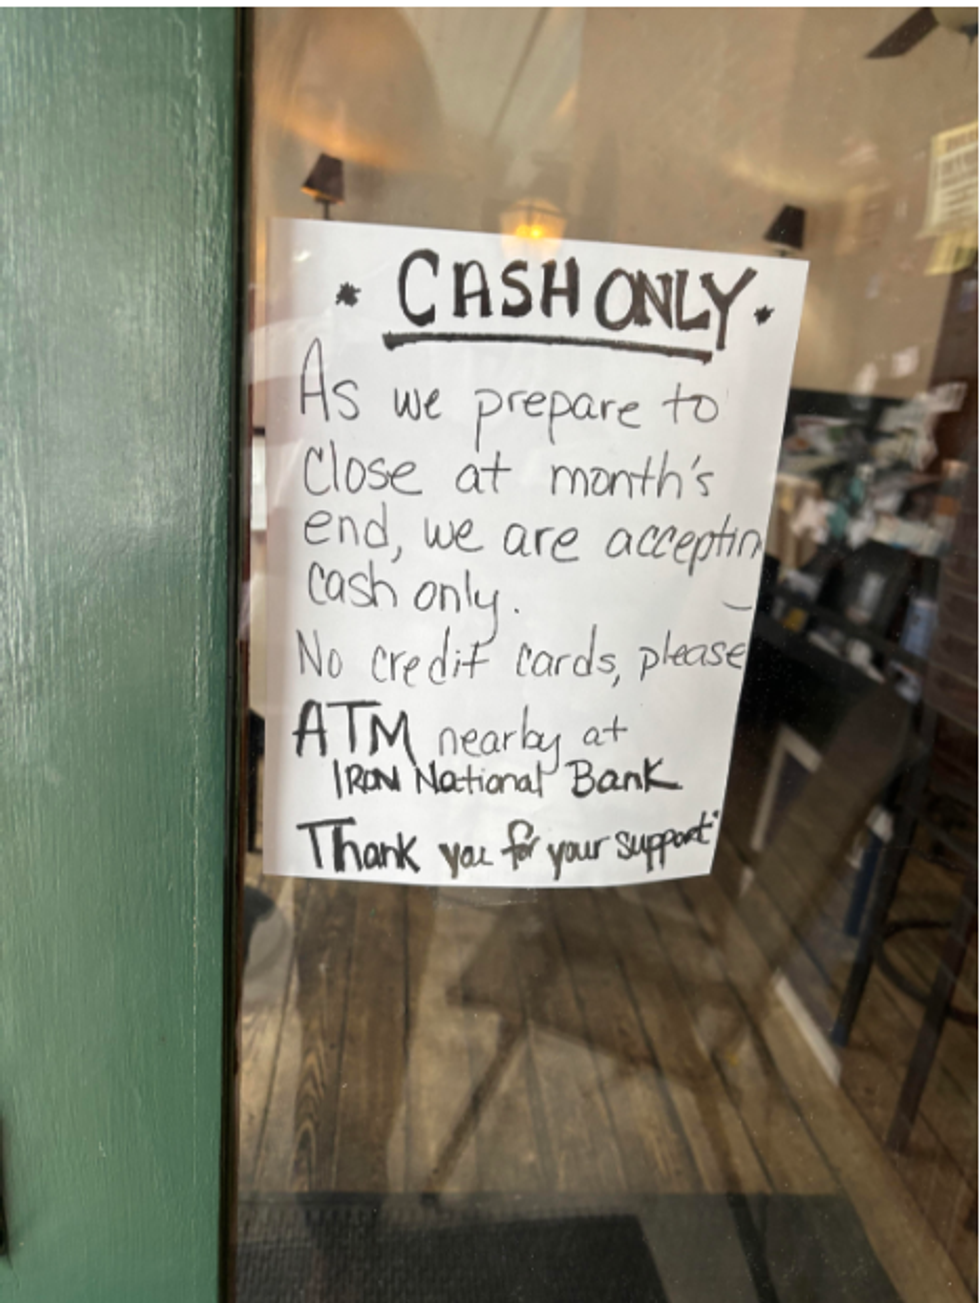 * CASH ONLY *
As we prepare to
close at month's
end, we are acceptin
cash only.
No credit cards, please
ATM nearby at
IRON National Bank
Thank you for your support